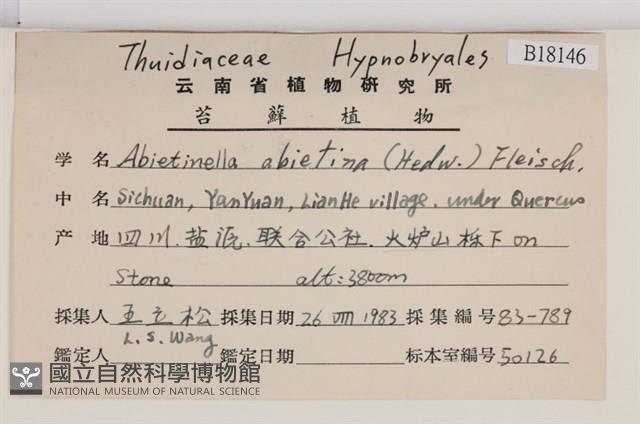 Thuidiaceae Hypnobryales B18146
云南省植物研究所
苔蘚植物
学名 Abietinella abietina (Hedw.) Fleisch.
中名 Sichuan, YanYuan, LianHe village. under Quercus
产地 四川.盐源.联合公社.火炉山栎下 on
Stone alt: 3800m
採集人 王立松 採集日期 26 VIII 1983 採集編号 83-789
L. S. Wang
鑑定人 鑑定日期 标本室編号 50126
國立自然科學博物館
NATIONAL MUSEUM OF NATURAL SCIENCE